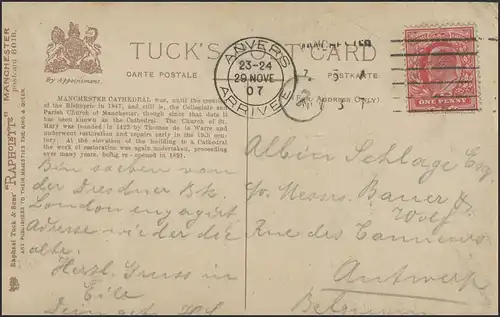 TUCK'S POST CARD
CARTE POSTALE
POSTKARTE
By Appointment.
(For Address Only)
MANCHESTER
ANVERS
23-24
29 NOVE
07
ARRIVEE
ONE PENNY
MANCHESTER CATHEDRAL was, until the creation
of the Bishopric in 1847, and still is, the Collegiate and
Parish Church of Manchester, though since that date it
has been known as the Cathedral. The Church of St.
Mary was founded in 1422 by Thomas de la Warre and
underwent restoration and repairs early in the 19th cen-
tury. At the elevation of the building to a Cathedral
the work of restoration was again undertaken, proceeding
over many years, being re-opened in 1891.
Raphael Tuck & Sons' "RAPHOLETTE" MANCHESTER
ART PUBLISHERS TO THEIR MAJESTIES THE KING & QUEEN.
Bin soeben von
der Dresdner Bk.
London engagirt
Adresse wieder die
alte.
Herzl. Gruss in
Eile
Albin Schlage Esq
c/o Messrs. Bauer &
Wolf
Rue des Tanneurs
Antwerp
Belgium